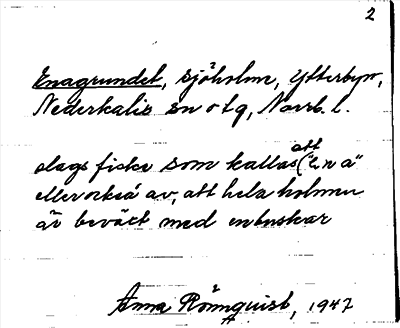 2
Enagrundet, sjöholme, Ytterbyn,
Nederkalix sn o tg, Norrb. l.
att
slags fiske som kallas ("En a"
eller också av, att hela holmen
är beväxt med enbuskar
Anna Rönnquist, 1947